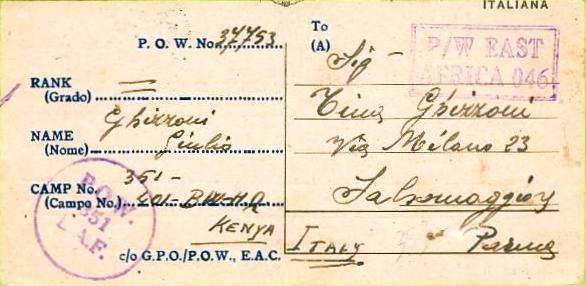 ITALIANA
P. O. W. No. 34753
To
(A)
Sig
P/W EAST
AFRICA 046
RANK
(Grado)
Tina Ghizzoni
NAME
(Nome)
Ghizzoni
Giulio
Via Milano 23
CAMP No.
(Campo No.)
351-
Salsomaggiore
P.O.W.
351
E.A.F.
KENYA
ITALY
Parma
c/o G.P.O./P.O.W., E.A.C.